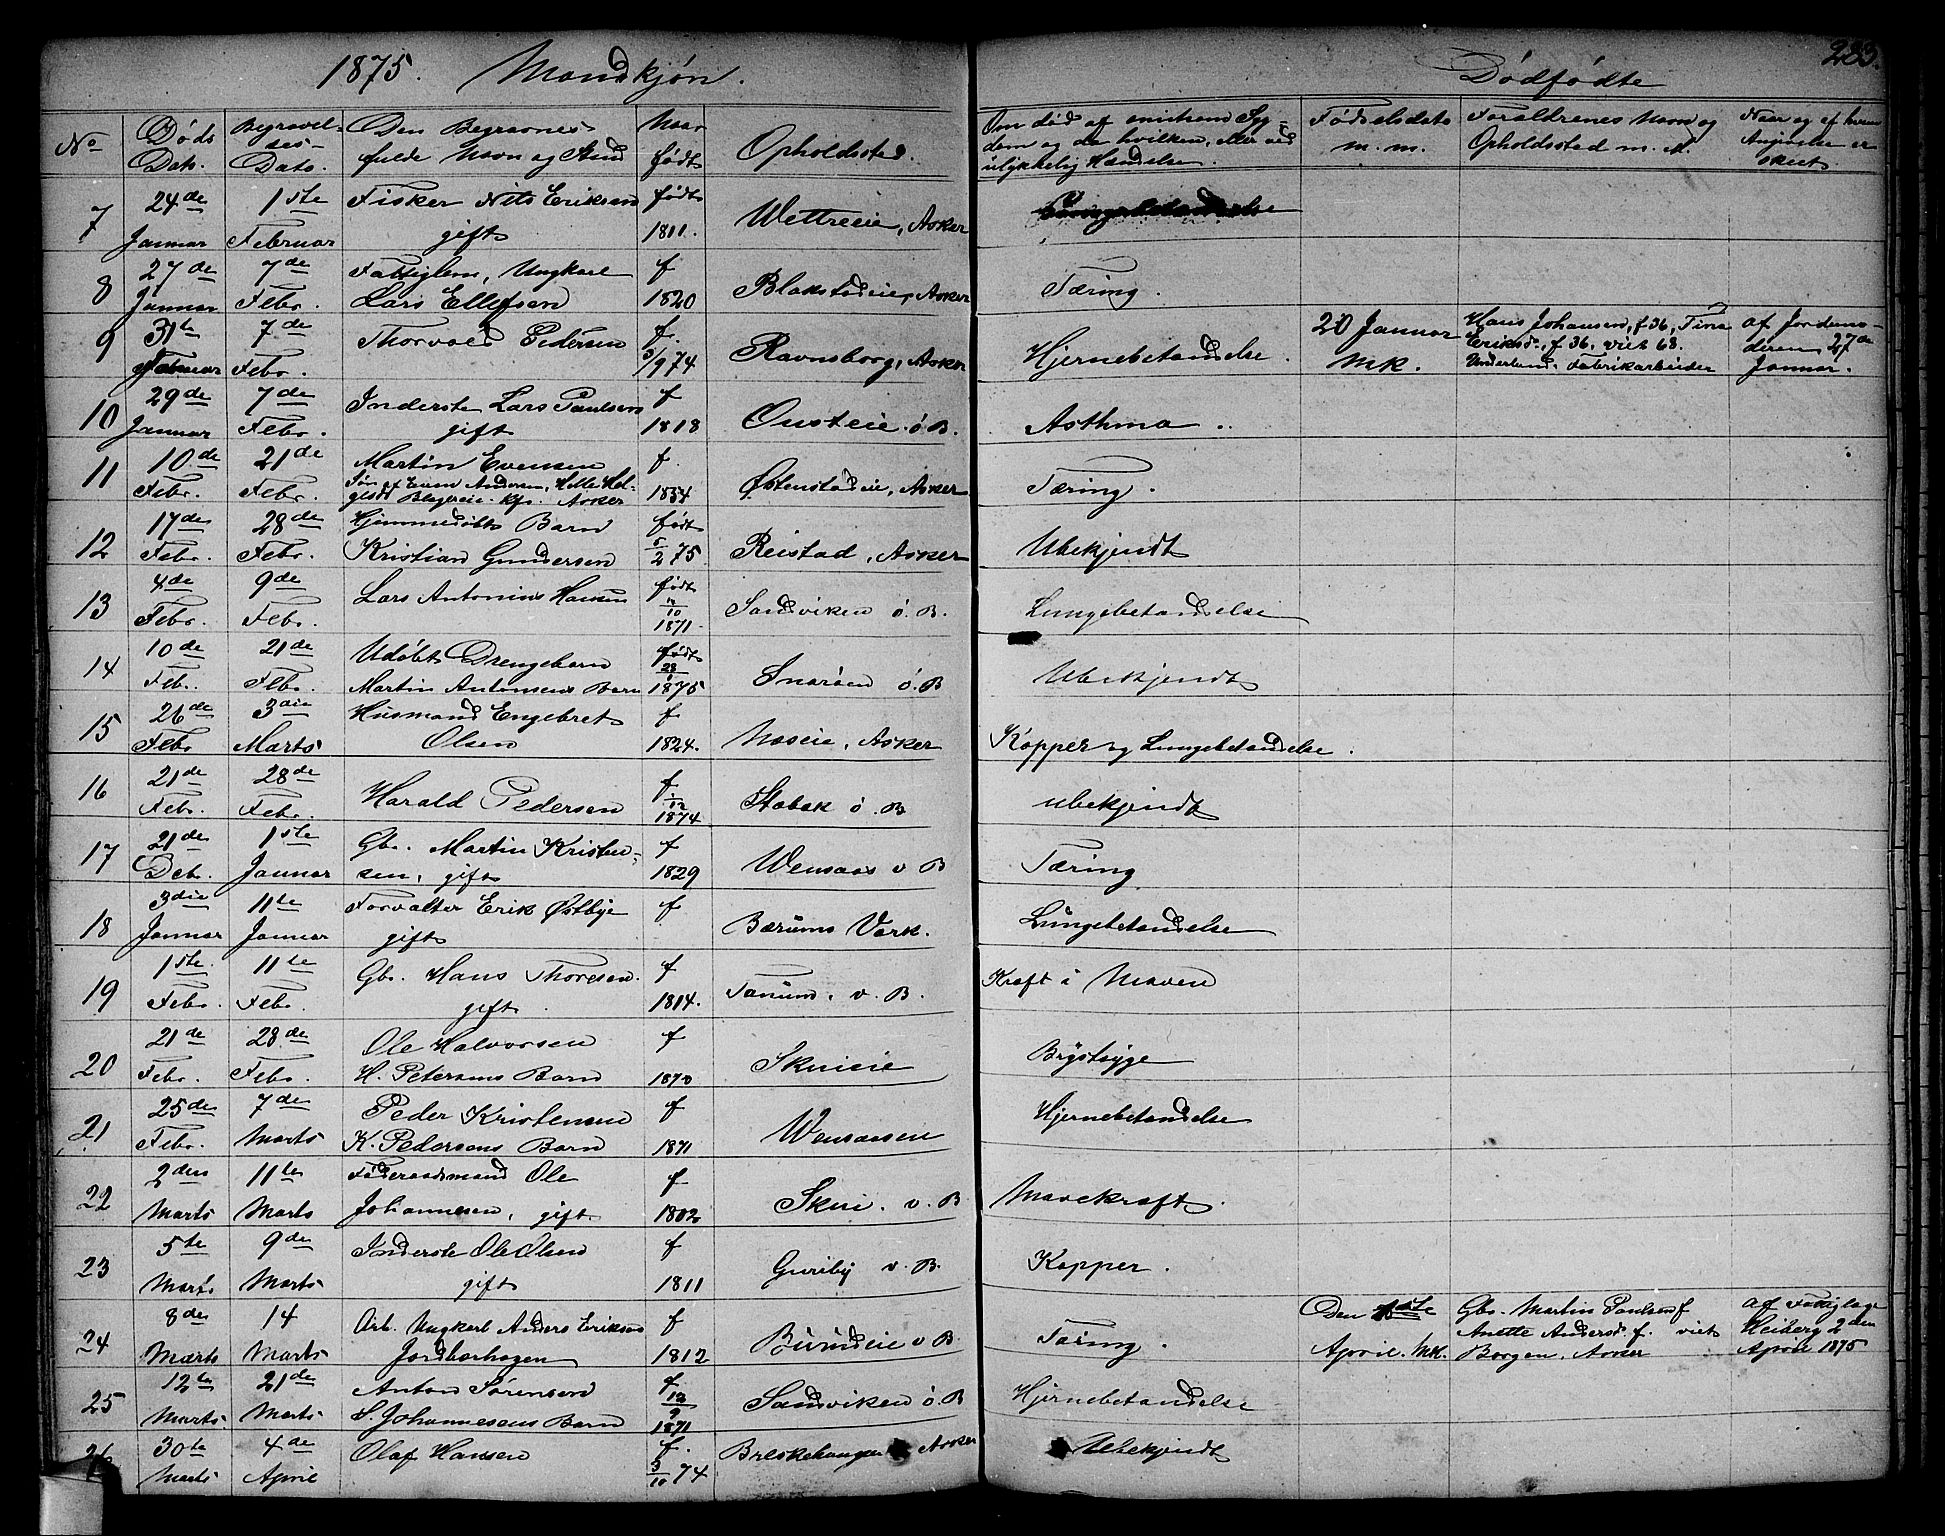 1875. Mandkjøn.
Dødfødte
283.
No
Døds Dato.
Begravelses-Dato.
Den Begravnes fulde Navn og Stand
Naar født
Opholdssted.
Om død af smitsom Sygdom og da hvilken, eller ved ulykkelig Hændelse.
Fødselsdato m. m.
Forældrenes Navn og Opholdssted m. M.
Naar og af hvem Angivelse er skeet.
7 24de Januar 1ste Februar Fisker Nils Eriksen gift født 1811. Wettreeie, Asker
8 27de Januar 7de Febr. Fattiglem, Ungkarl Lars Ellefsen f 1820 Blakstadeie, Asker Tæring.
9 31te Januar 7de Febr. Thorvald Pedersen f. 5/9 74 Ravnsborg, Asker Hjernebetændelse.
20 Januar MK. Hans Johansen, f. 36, Tina Eriksd., f 36, viet 68. Underlund. Fabrikarbeider af Jordemoderen 27de Januar.
10 29de Januar 7de Febr. Inderste Lars Paulsen gift f 1818 Ousteie ø. B. Asthma.
11 10de Febr. 21de Febr. Martin Evensen Søn af Even Andersen, Helle Helgesdt Blegereie. kfr. Asker f. 1834 Østenstadeie, Asker Tæring.
12 17de Febr. 28de Febr. Hjemmedøbt Barn Kristian Gundersen født 5/2 75. Reistad, Asker Ubekjendt
13 4de Febr. 9de Febr. Lars Antonius Hansen født /10 1871. Sandviken ø. B. Lungebetændelse
14 10de Feb. 21de Febr. Udøbt Drengebarn Martin Antonsens Barn født 1875 Snarøen ø. B Ubekjendt
15 26de Febr 3die Marts Husmand Engebret Olsen f 1824. Næseie, Asker Kopper og Lungebetændelse.
16 21de Febr. 28de Febr. Harald Pedersen f /12 1874 Stabæk ø. B ubekjendt
17 21de Deb. 1ste Januar Gbr. Martin Kristensen, gift f 1829 Wensaas v B Tæring
18 3die Januar 11te Januar Forvalter Erik Østbye gift f Bærums Værk. Lungebetændelse
19 1ste Febr. 11te Febr. Gbr. Hans Thoresen. gift f 1814. Tanum. v. B. Kræft i Maven
20 21de Febr. 28de Febr. Ole Halvorsen H. Petersens Barn f 1870 Skuieie Brystsyge
21 25de Febr. 7de Marts Peder Kristensen K. Pedersens Barn f 1871 Wensaasen Hjernebetændelse
22 2den Marts 11te Marts Føderaadsmand Ole Johannesen, gift f 1802 Skui. v. B Mavekræft.
23 5te Marts 9de Marts Inderste Ole Olsen gift f 1811 Guriby v. B. Kopper.
24 8de Marts 14 Marts Arb. Ungkarl Anders Eriksen Jordbærhagen f 1812 Burudeie v B Tæring.
Den 1ste April. MK. Gbr. Martin Paulsen f. Anette Andersd. f. viet Borgen, Asker af Heiberg 2den April 1875
25 12te Marts 21de Marts Anton Sørensen S. Johannesens Barn f. 13/9 1871 Sandviken ø. B Hjernebetændelse
26 30te Marts 4de April Olaf Hansen f. 3/10 74 Asker Ubekjendt